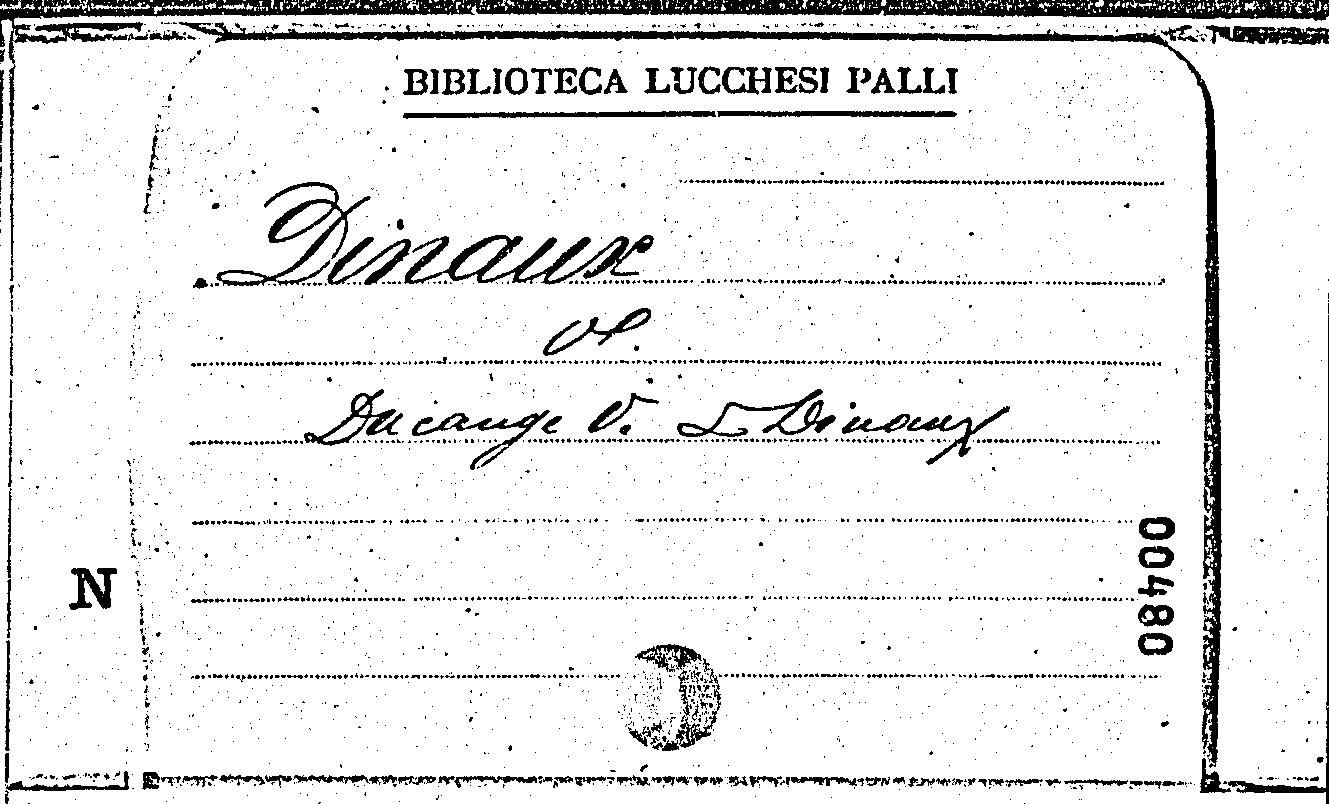 BIBLIOTECA LUCCHESI PALLI
Dinaux
v.
Ducange V. L Dinaux
N
00480